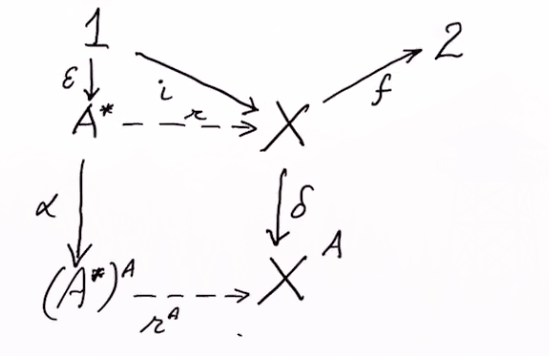 1 2
ε i f
A* r X
α δ
(A*)^A r^A X^A